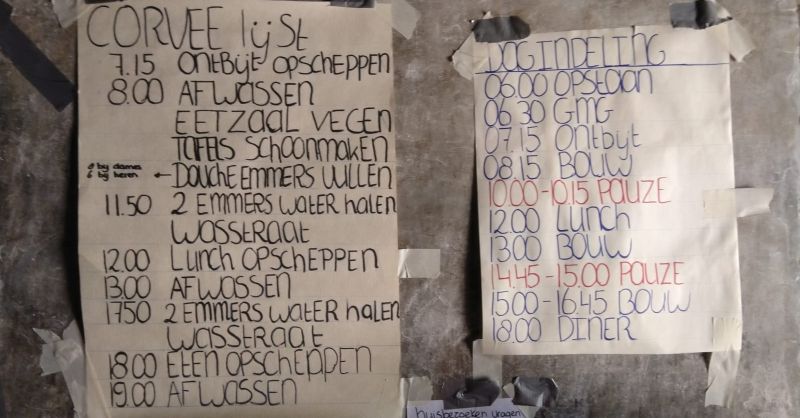 CORVEE lijst
7.15 Ontbijt opscheppen
8.00 AFWASSEN
EETZAAL VEGEN
TAFELS SCHOONMAKEN
bij dames
6 bij heren ← DOUCHE EMMERS VULLEN
11.50 2 EMMERS water halen
WASSTRAAT
12.00 Lunch OPSCHEPPEN
13.00 AFWASSEN
1750 2 EMMERS water halen
WASSTRAAT
18.00 ETEN OPSCHEPPEN
19.00 AFWASSEN
DAGINDELING
06.00 OPSTAAN
06 30 GMG
07.15 Ontbijt
08.15 BOUW
10.00-10.15 PAUZE
12.00 Lunch
13.00 BOUW
14.45-15.00 PAUZE
15.00-16.45 BOUW
18.00 DINER
huisbezoeken vragen